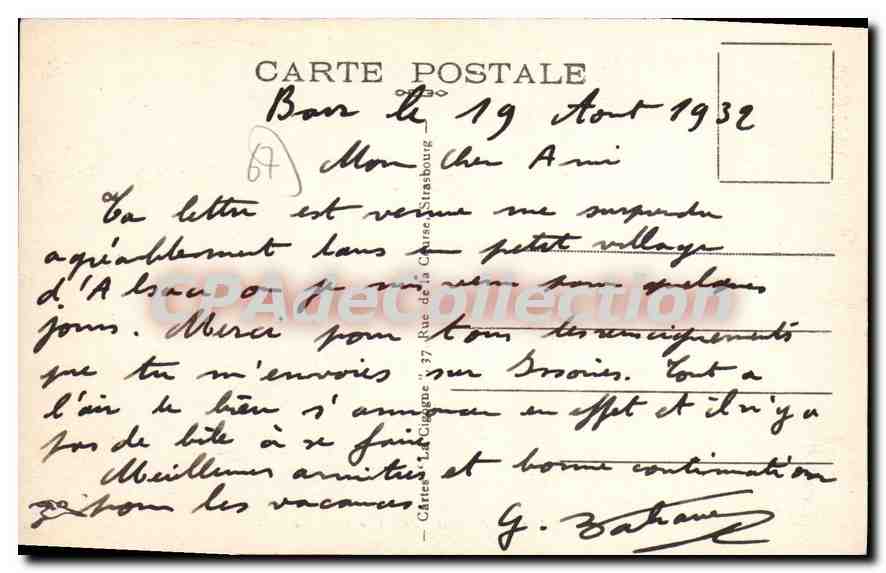 CARTE POSTALE
Barr le 19 Aout 1932
67
Mon cher Ami
Ta lettre est venue me surprendre
agréablement dans un petit village
d'Alsace ou je suis venu pour quelques
jours. Merci pour tous les renseignements
que tu m'envoies sur Issoire. Tout a
l'air de bien s'annoncer en effet et il n'y a
pas de bile à se faire
Meilleures amitiés et bonne continuation
pour les vacances
G.
— Cartes "La Cigogne" 37, Rue de la Course, Strasbourg —
CPAdeCollection